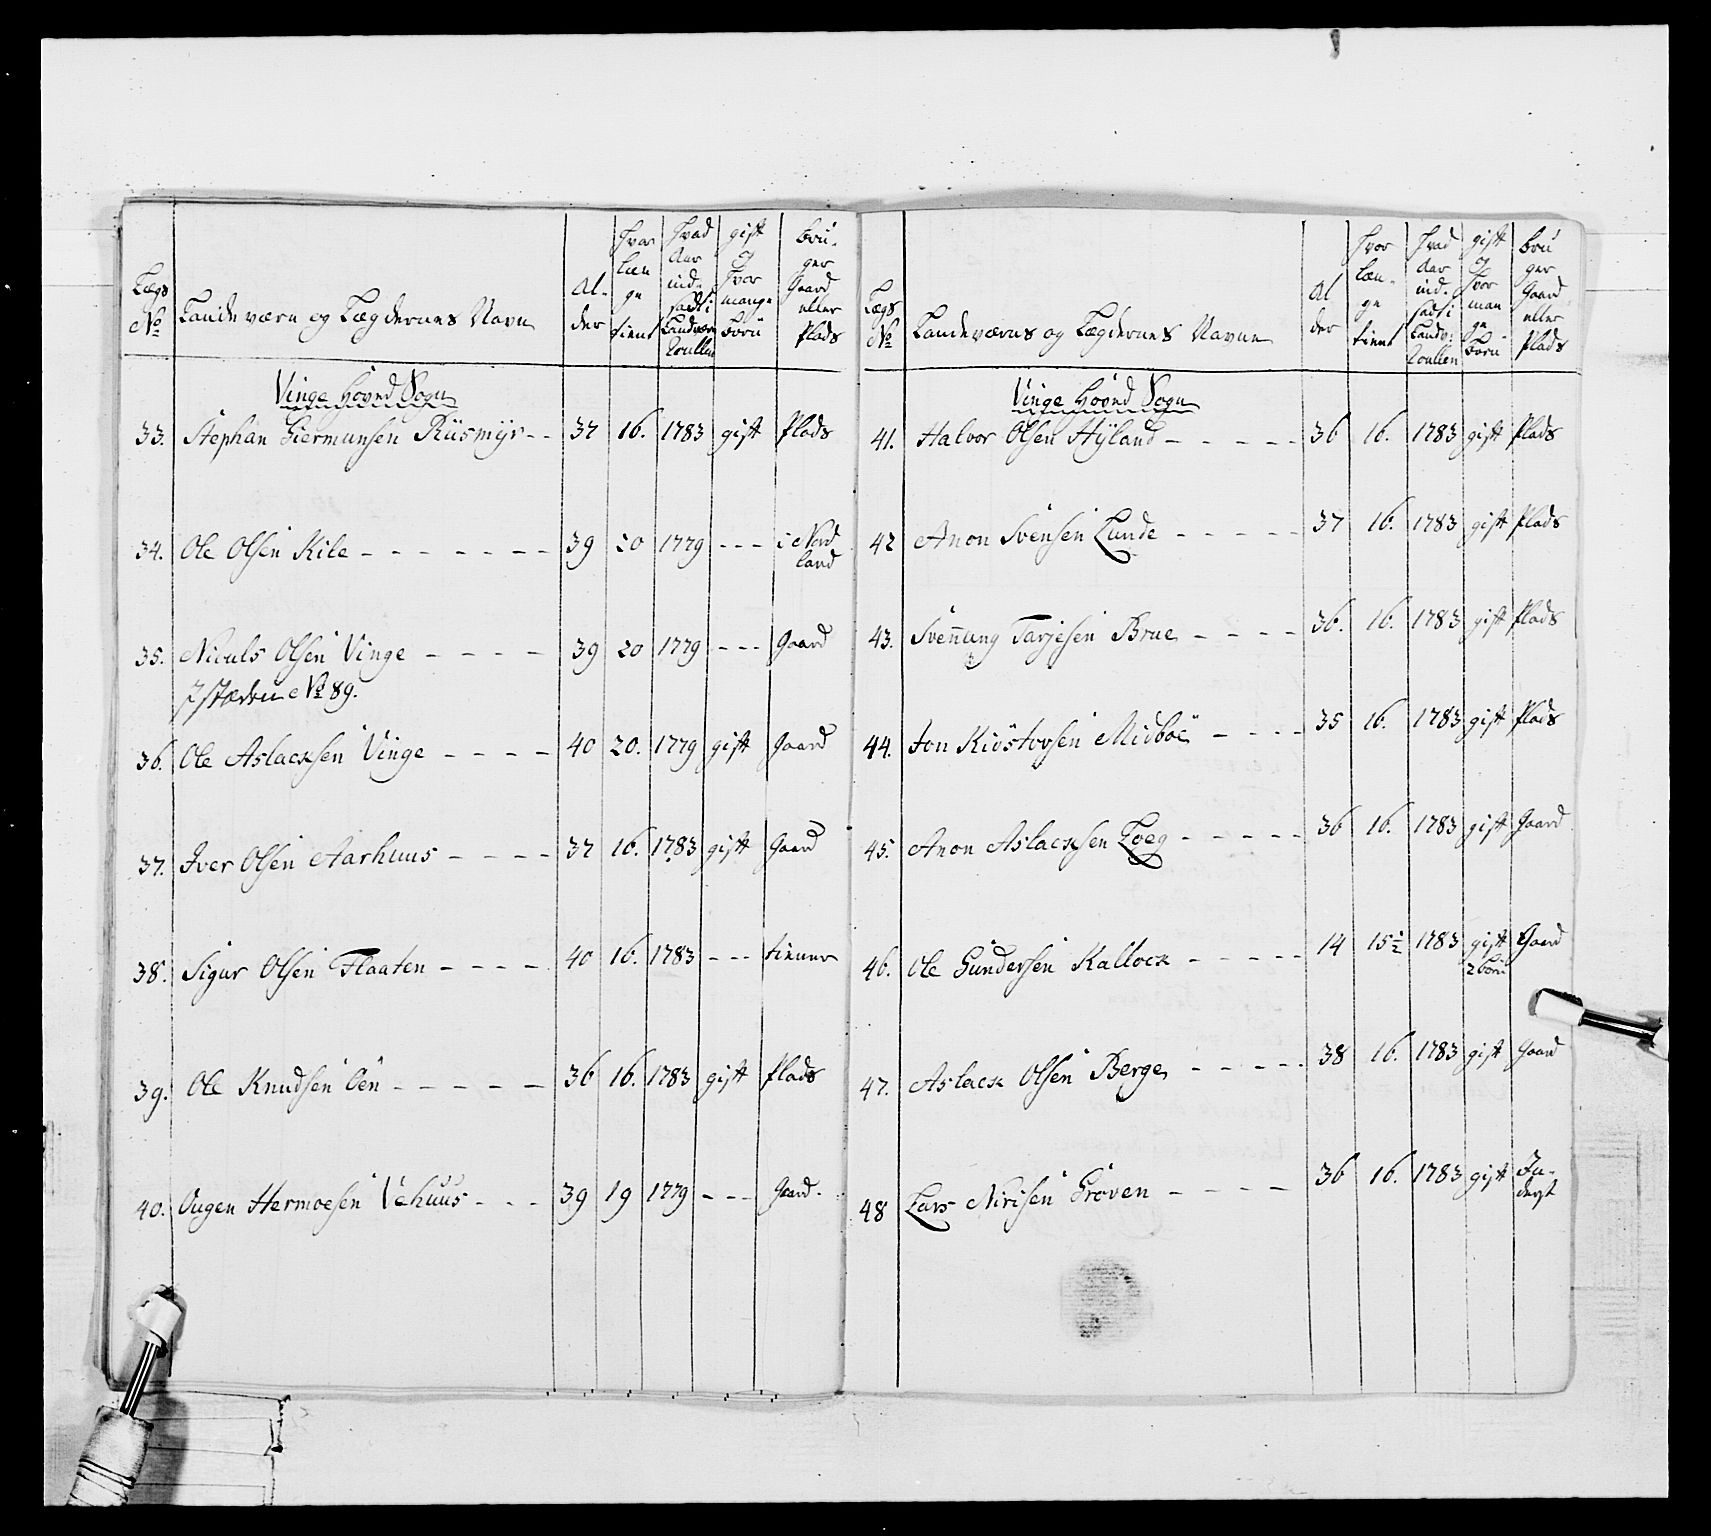 Lægs No | Landeværn og Lægdernes Navn | Al- der | Hvor læn ge tient | Hvad Aar ind- sadt i Landværn Roullen | gift og Hvor mange Börn | bru- ger Gaard eller Plads
Vinge Hoved Sogn
33. Stephan Giermunsen Rüsmÿr - - 37 16. 1783 gift Plads
34. Ole Olsen Kile - - - - - - - 39 20 1779 - - - i Nord
land
35. Niculs Olsen Vinge - - - - 39 20 1779 - - - Gaard
I stæden No 89.
36. Ole Aslacksen Vinge - - - - 40 20. 1779 gift Gaard
37. Iver Olsen Aarhuus - - - - 37 16. 1783 gift Gaard
38. Sigur Olsen Flaaten - - - - 40 16. 1783 - - - tienner
39. Ole Knudsen Öen - - - - - 36 16. 1783 gift Plads
40. Ougen Hermoesen Vehuus - - - 39 19 1779 - - - Gaard.
Lægs No | Landeværns og Lægdernes Navne | Al der | Hvor læn- ge tient | Hvad Aar ind- sadt i Landv: Roullen | gift og Hvor man ge Börn | bru ger Gaard eller Plads
Vinge Hoved Sogn
41. Halvor Olsen Hÿland - - - - - 36 16. 1783 gift Plads
42 Anon Svensen Lunde - - - - - 37 16. 1783 gift Plads
43. Svennung Tarjesen Brue - - - - 36. 16. 1783 gift Plads
44. Jon Kiöstovsen Midböe - - - - 35 16. 1783 gift Plads
45. Anon Aslacksen Loeg - - - - - 36 16. 1783 gift Gaard
46. Ole Gundersen Kallock - - - - - 14 15½ 1783 gift Gaard
2 börn
47. Aslack Olsen Berge - - - - - 38 16. 1783 gift Gaard
48 Lars Nirisen Gröven - - - - 36 16. 1783 gift In-
derst